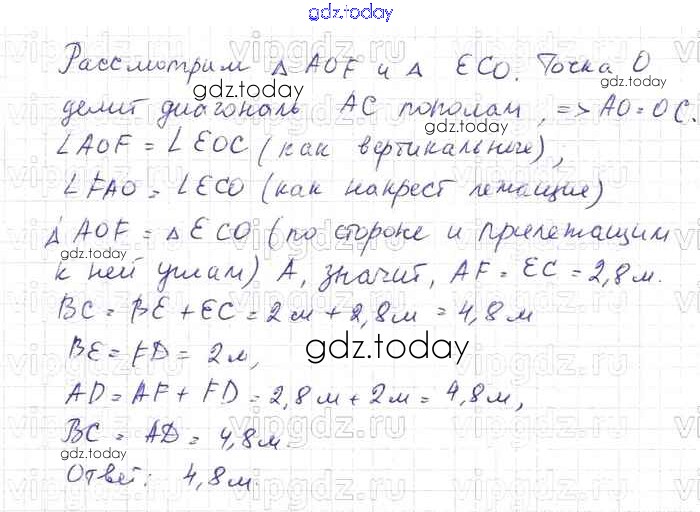 gdz.today
Рассмотрим △ AOF и △ ECO. Точка O
делит диагональ AC пополам, => AO = OC.
∠AOF = ∠EOC (как вертикальные),
∠FAO = ∠ECO (как накрест лежащие)
△ AOF = △ ECO (по стороне и прилежащим
к ней углам) А, значит, AF = EC = 2,8 м.
BC = BE + EC = 2 м + 2,8 м = 4,8 м
BE = FD = 2 м,
AD = AF + FD = 2,8 м + 2 м = 4,8 м,
BC = AD = 4,8 м.
Ответ: 4,8 м.
gdz.today
gdz.today
gdz.today
gdz.today
gdz.today
gdz.today